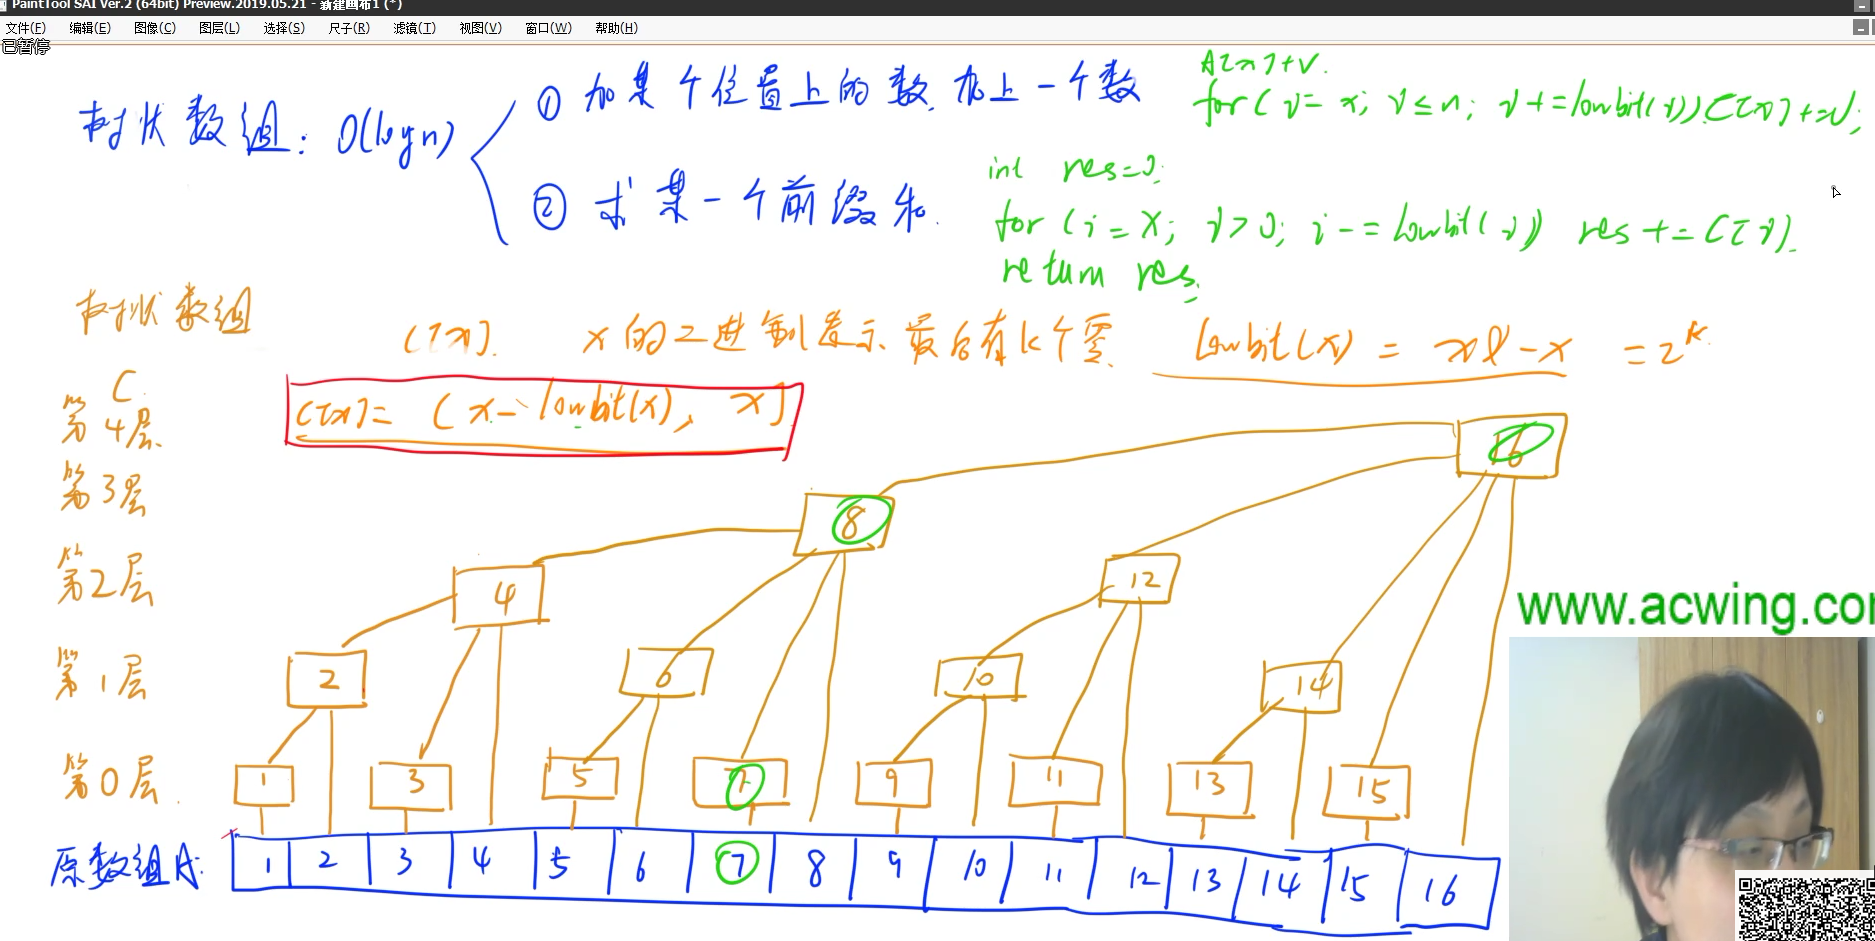 PaintTool SAI Ver.2 (64bit) Preview.2019.05.21 - 新建画布1 (*)
文件(F) 编辑(E) 图像(C) 图层(L) 选择(S) 尺子(R) 滤镜(T) 视图(V) 窗口(W) 帮助(H)
已暂停
A[x]+V.
树状数组: O(logn)
① 加某个位置上的数,加上一个数
for(i= x; i≤n; i+=lowbit(i)) C[i]+=V;
② 求某一个前缀和.
int res=0;
for (i=X; i>0; i-=lowbit(i)) res+=C[i].
return res;
树状数组
C[x]. x的二进制表示最后有k个零. lowbit(x) = x& -x = 2^k.
C[x]= (x-lowbit(x), x]
C
第4层.
第3层
第2层
第1层
第0层.
16
8
4 12
2 6 10 14
1 3 5 7 9 11 13 15
原数组A: 1 2 3 4 5 6 7 8 9 10 11 12 13 14 15 16
www.acwing.co